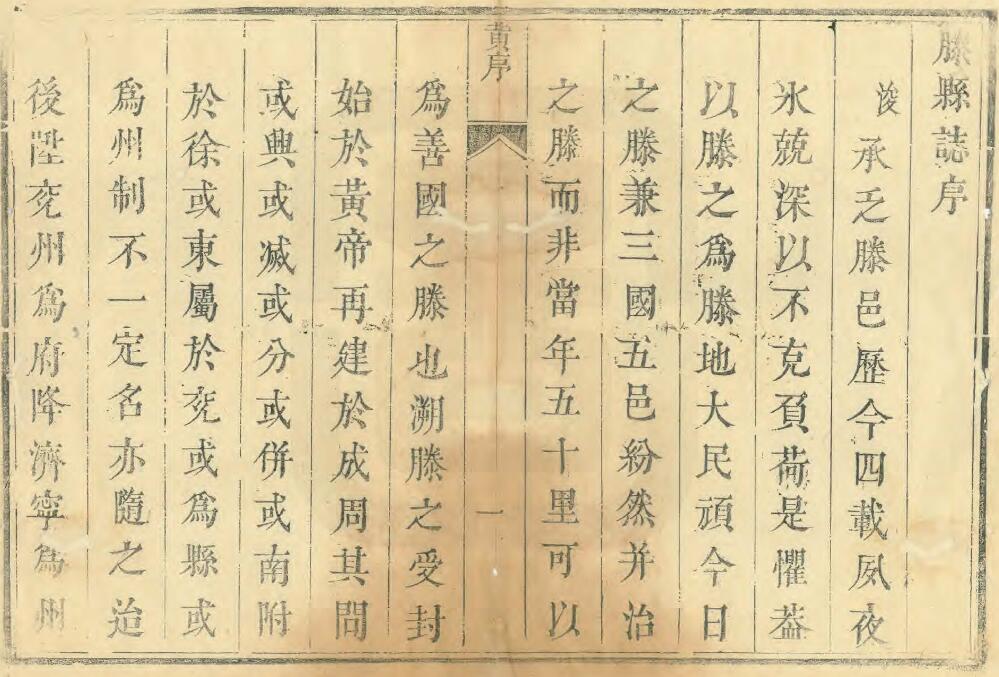 滕縣誌序
浚承乏滕邑歷今四載夙夜
氷兢深以不克負荷是懼葢
以滕之爲滕地大民頑今日
之滕兼三國五邑紛然并治
之滕而非當年五十里可以
黄序
一
爲善國之滕也溯滕之受封
始於黄帝再建於成周其問
或興或滅或分或併或南附
於徐或東屬於兖或爲縣或
爲州制不一定名亦隨之迨
後陞兖州爲府降濟寧爲州